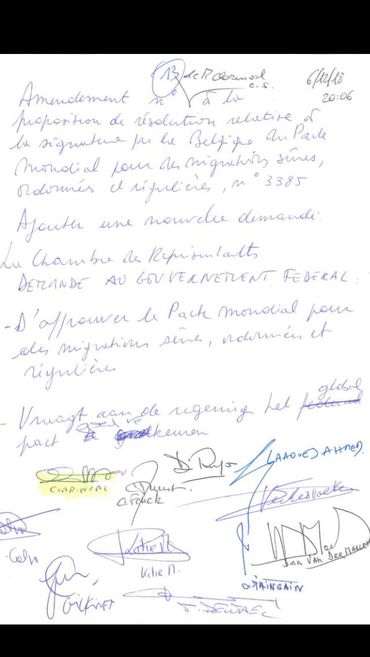 13 de M c.s. 6/12/18
Amendement n° à la 20:06
proposition de résolution relative à
la signature par la Belgique du Pacte
Mondial pour des migrations sûres,
ordonnées et régulières, n° 3385
Ajouter une nouvelle demande
La Chambre des Représentants
DEMANDE AU GOUVERNEMENT FEDERAL :
- D'approuver le Pacte Mondial pour
des migrations sûres, ordonnées et
régulières
global
- Vraagt aan de regering het
pact goed te keuren
LAAOUEJ AHMED
Kitir M.
Dirk VAN DER MAELEN
GILKINET
MAINGAIN